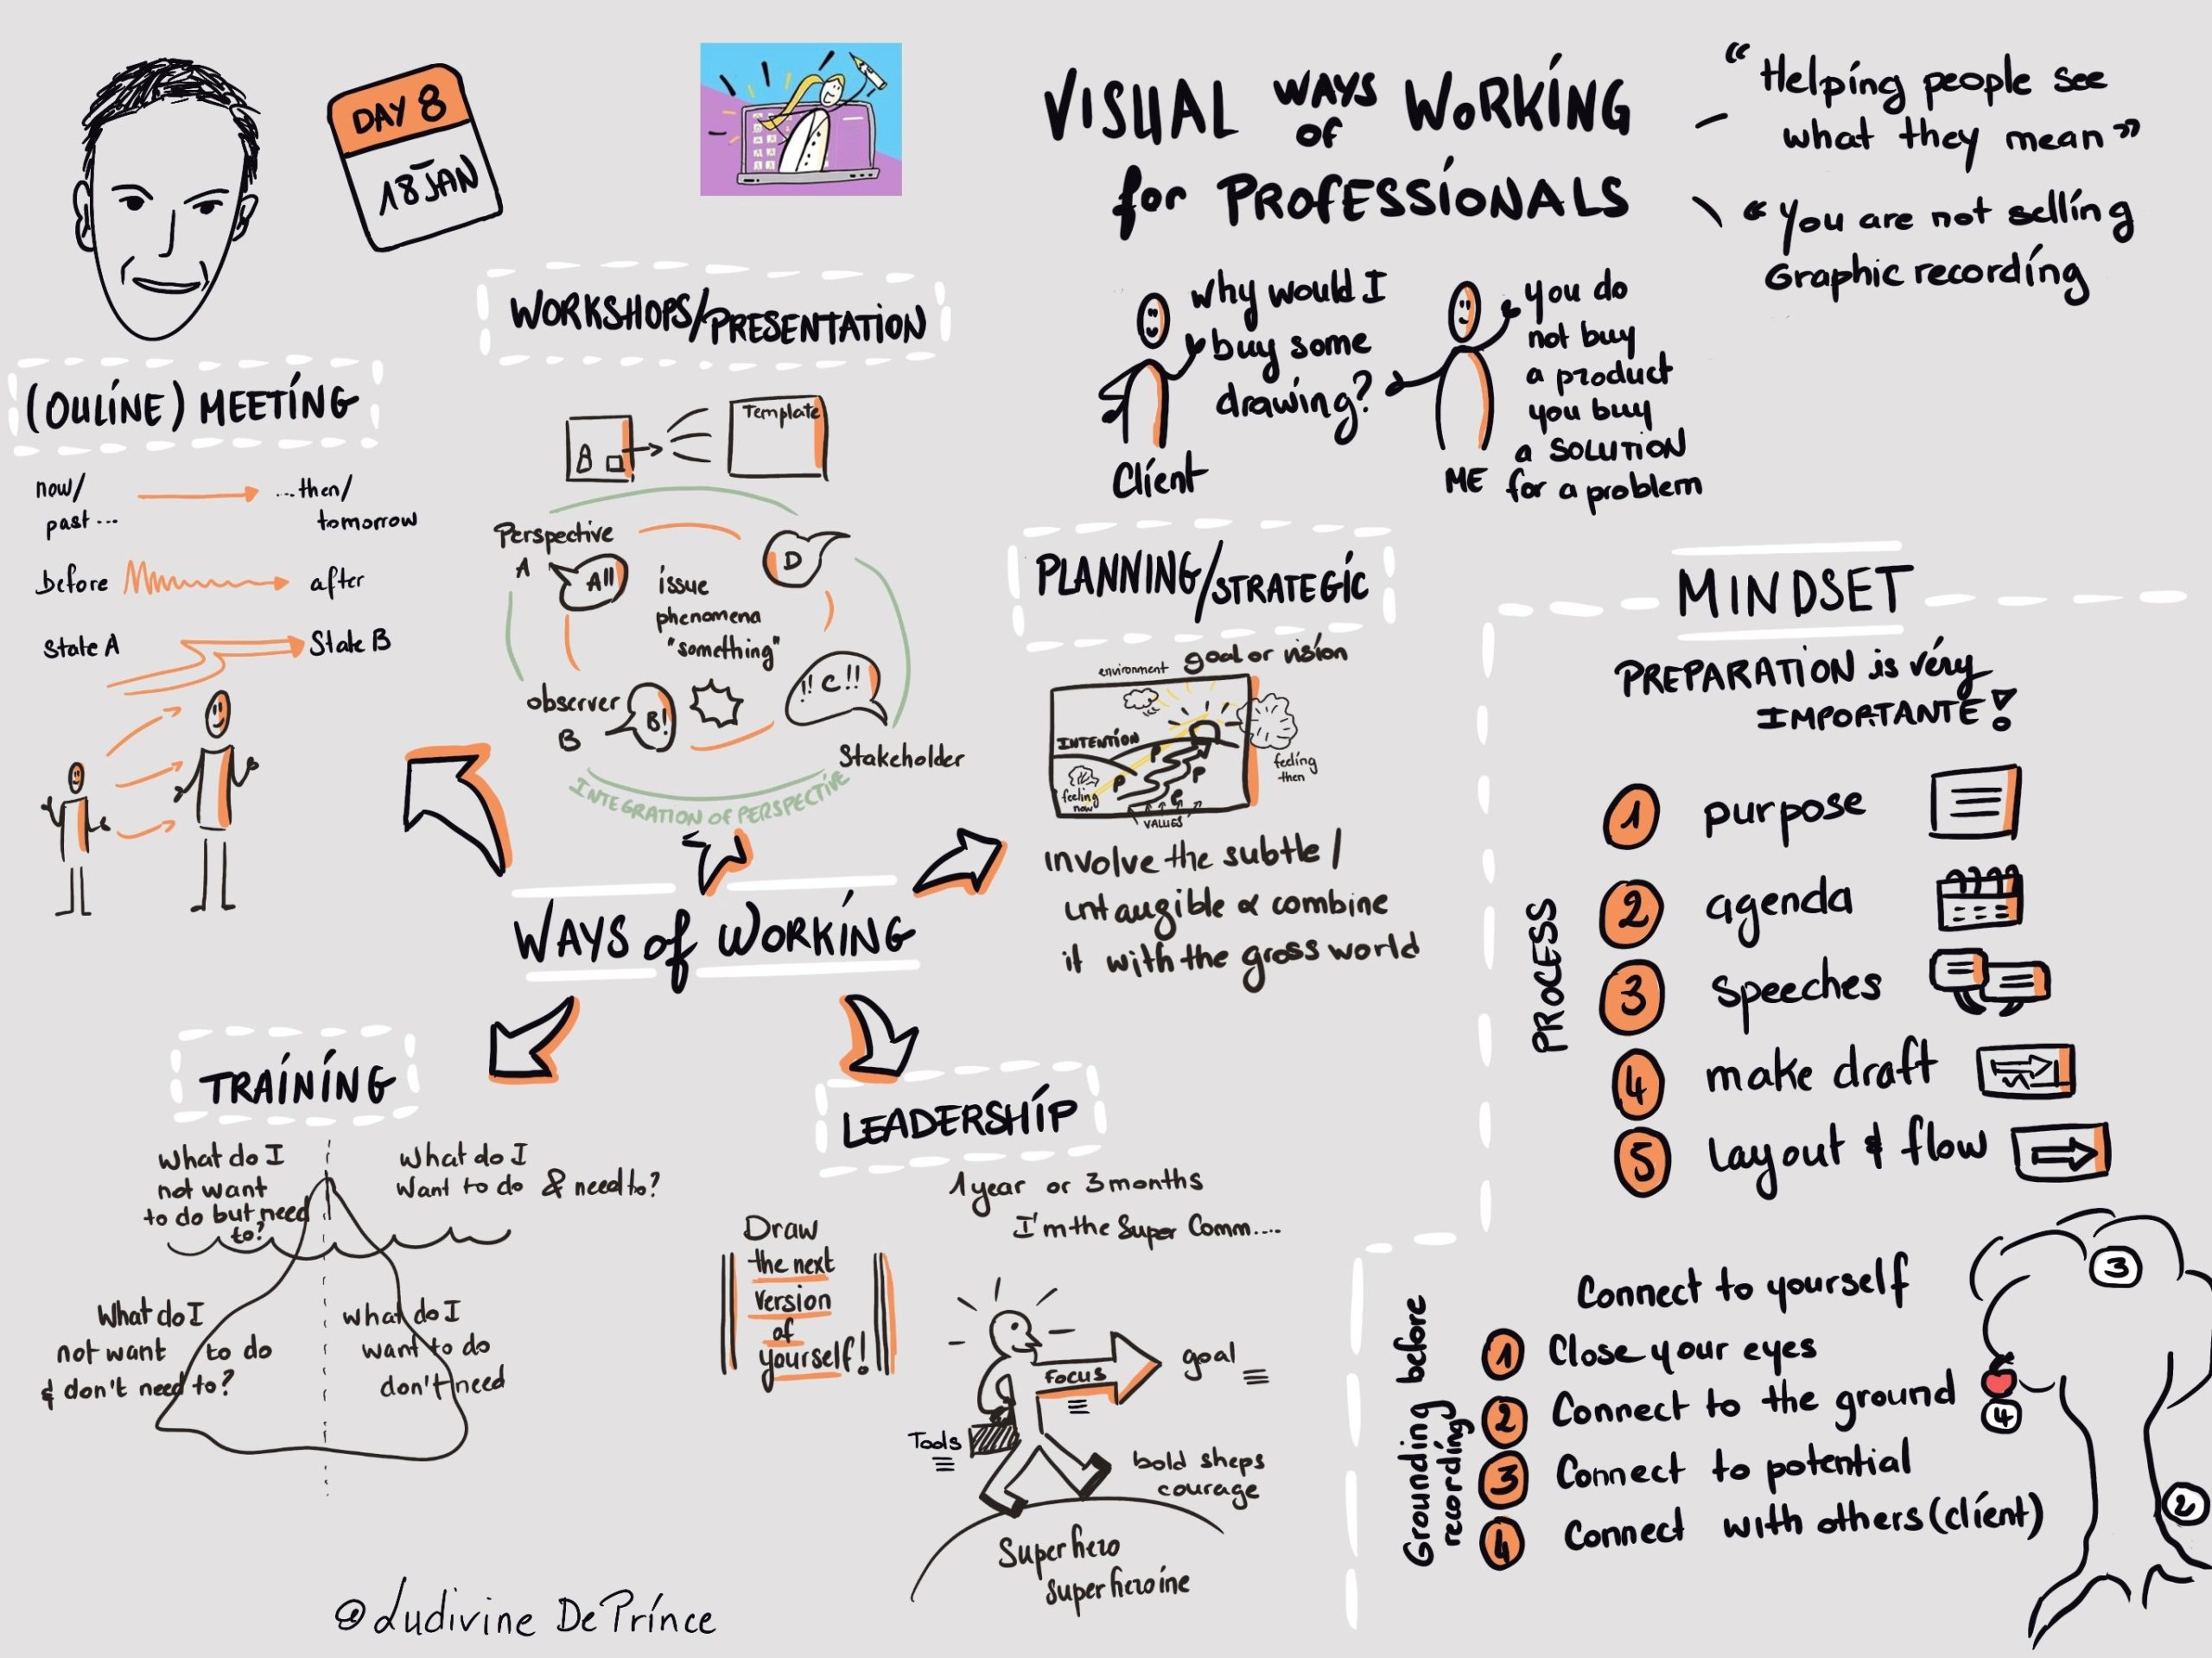 DAY 8
18 JAN
VISUAL WAYS of WORKING
for PROFESSIONALS
“Helping people see
what they mean”
“You are not selling
Graphic recording
Why would I
buy some
drawing?
Client
you do
not buy
a product
you buy
a SOLUTION
for a problem
ME
WORKSHOPS/PRESENTATION
Template
Perspective
A
A!!
D
issue
phenomena
"something"
observer
B
B!
!! C !!
Stakeholder
INTEGRATION OF PERSPECTIVE
(OULINE) MEETING
now/
past...
...then/
tomorrow
before
after
State A
State B
PLANNING/STRATEGIC
environment
goal or vision
INTENTION
feeling
now
feeling
then
P
P
P
VALUES
involve the subtle/
untaugible & combine
it with the gross world
WAYS of WORKING
TRAINING
What do I
not want
to do but need
to?
What do I
Want to do & need to?
What do I
not want to do
& don't need to?
what do I
want to do
don't need
LEADERSHIP
1 year or 3 months
I'm the Super Comm....
Draw
the next
version
of
yourself!
FOCUS
goal
Tools
bold sheps
courage
Super hero
super heroine
MINDSET
PREPARATION is véry
IMPORTANTE!
PROCESS
1 purpose
2 agenda
3 speeches
4 make draft
5 layout & flow
Grounding before
recording
Connect to yourself
1 Close your eyes
2 Connect to the ground
3 Connect to potential
4 Connect with others (client)
3
4
2
@Ludivine De Prince